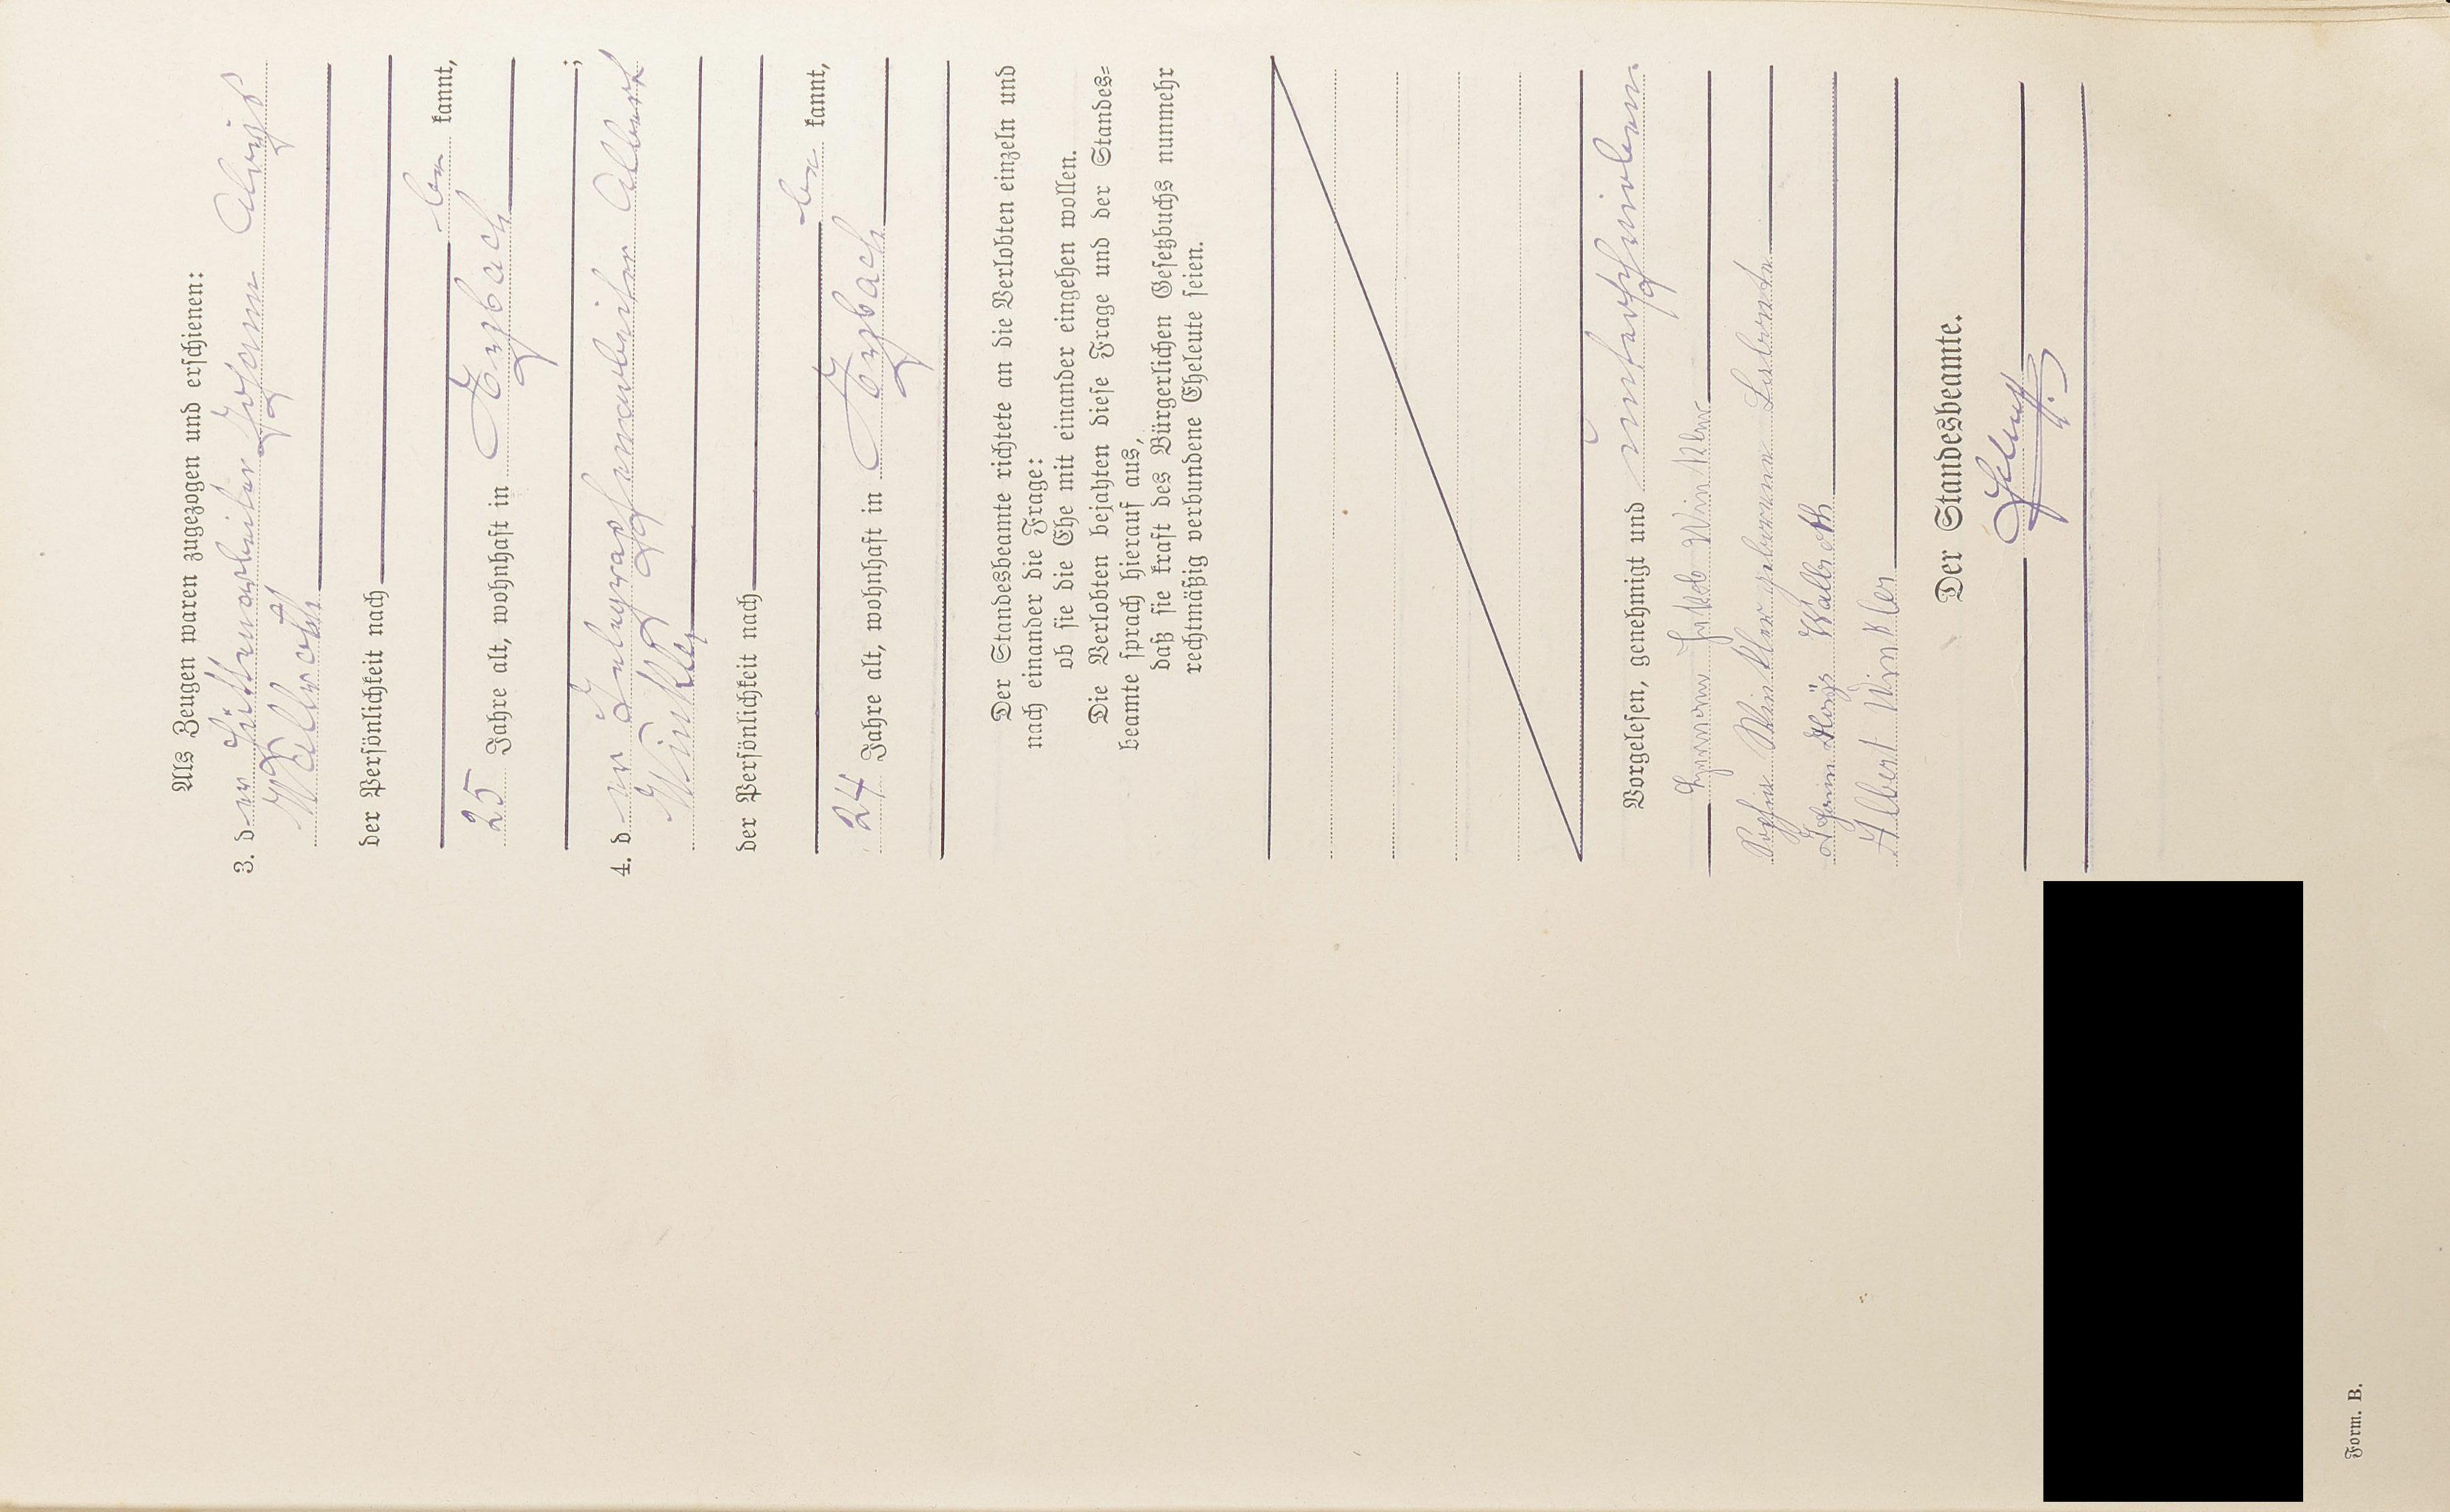 Als Zeugen waren zugezogen und erschienen:
3. der Hüttenarbeiter Johann Aloijs
Wallroth
der Persönlichkeit nach
be kannt,
25 Jahre alt, wohnhaft in Exzbach
;
4. der Telegraphenarbeiter Albert
Winkler
der Persönlichkeit nach
be kannt,
24 Jahre alt, wohnhaft in Exzbach
Der Standesbeamte richtete an die Verlobten einzeln und
nach einander die Frage:
ob sie die Ehe mit einander eingehen wollen.
Die Verlobten bejahten diese Frage und der Standes=
beamte sprach hierauf aus,
daß sie kraft des Bürgerlichen Gesetzbuchs nunmehr
rechtmäßig verbundene Eheleute seien.
Vorgelesen, genehmigt und unterschrieben.
Hermann Jakob Winkler
Sophie Winkler geborene
Johann Aloijs Wallroth
Albert Winkler
Der Standesbeamte.
Form. B.